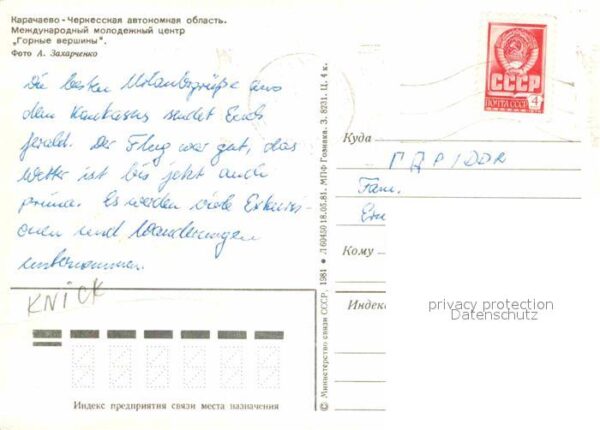 Карачаево-Черкесская автономная область.
Международный молодежный центр
„Горные вершины".
Фото А. Захарченко
Die besten Urlaubsgrüße aus
dem Kaukasus sendet Euch
Der Flug war gut, das
Wetter ist bis jetzt auch
prima. Es werden viele Exkursi-
onen und Wanderungen
unternommen.
KNICK
Индекс предприятия связи места назначения
© Министерство связи СССР, 1981 ◆ Л 60450 18.05.81. МПФ Гознака. З. 8231. Ц. 4 к.
СССР
ПОЧТА СССР 4
Куда
Fam.
Кому
Индекс
privacy protection
Datenschutz